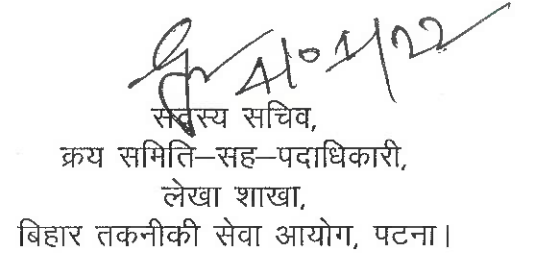 4/01/22
सदस्य सचिव,
क्रय समिति–सह–पदाधिकारी,
लेखा शाखा,
बिहार तकनीकी सेवा आयोग, पटना।